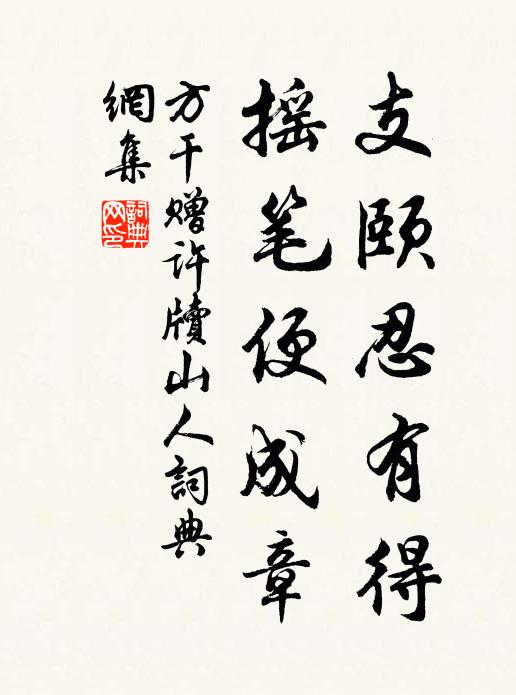 支颐忍有得
摇笔便成章
方干赠许牍山人詞典
網集
詞典
网印